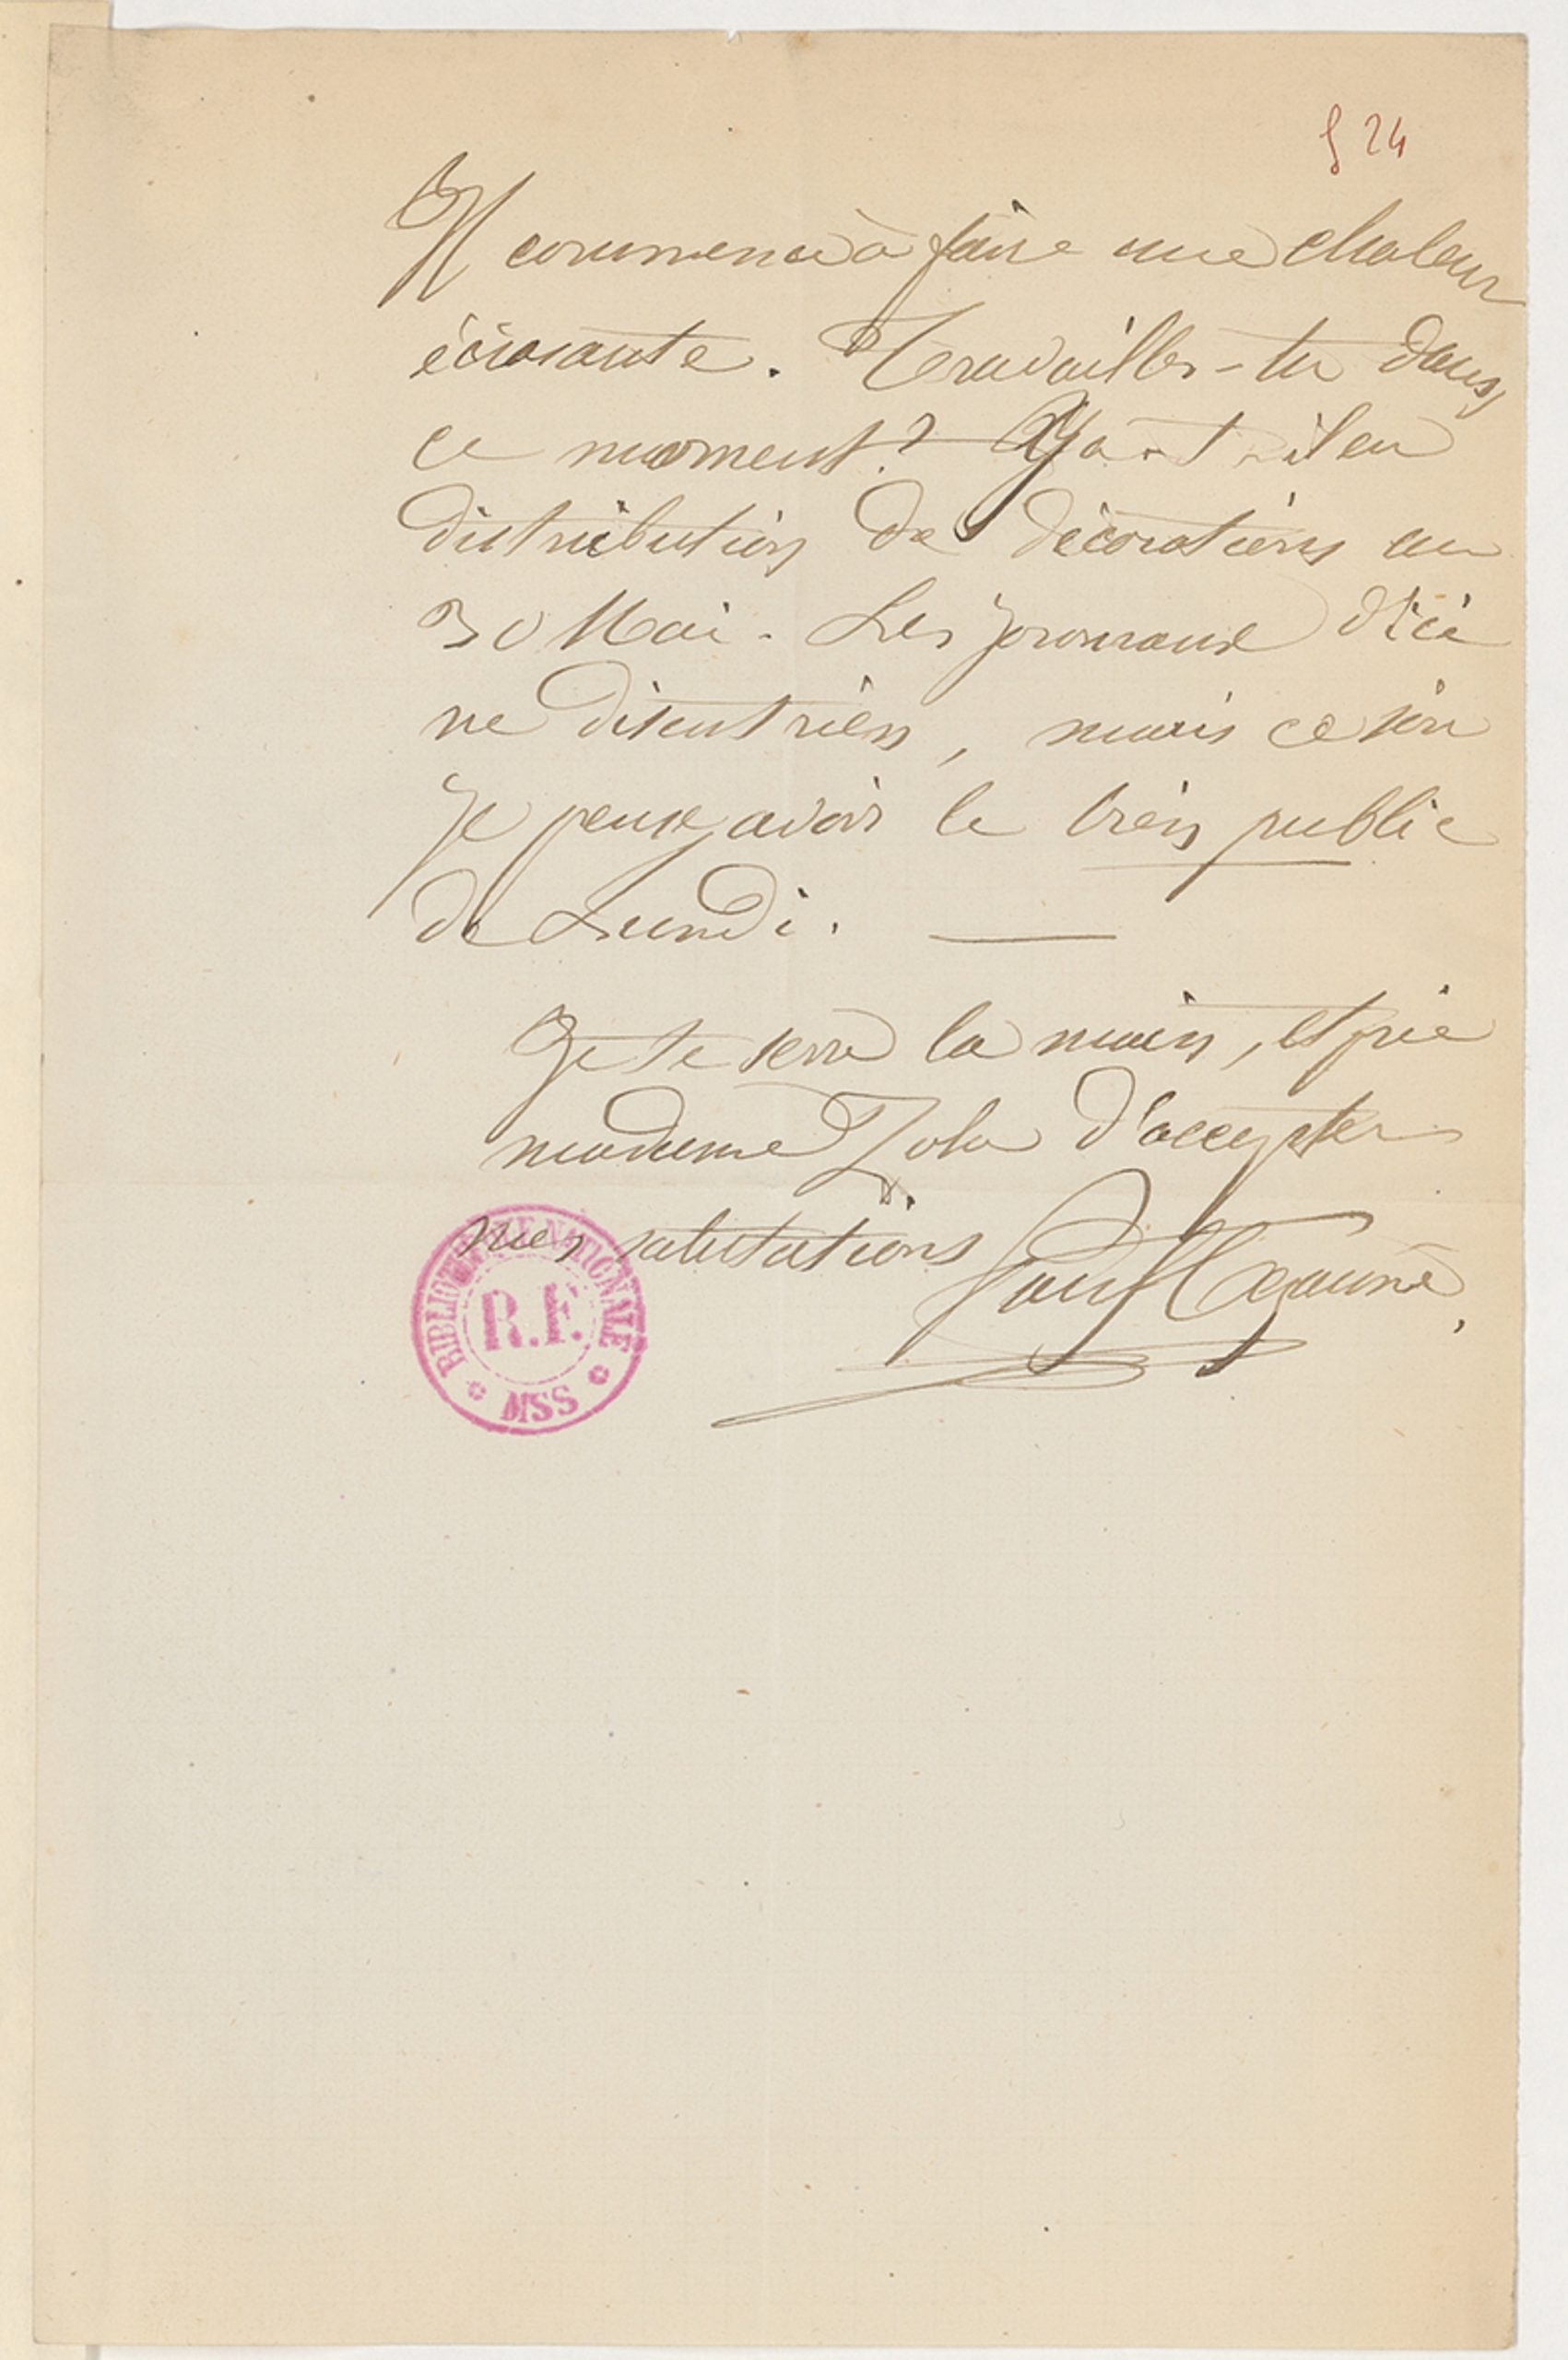 524
Il commence à faire une chaleur
écrasante. Travailles-tu dans
ce moment? Y a-t-il eu
distribution de décorations au
30 Mai. Les journaux d'ici
ne disent rien, mais ce soir
je peux avoir le bien public
de Lundi. —
Je te serre la main, et prie
madame Zola d'accepter
mes salutations Paul Cézanne.
BIBLIOTHÈQUE NATIONALE
R.F.
MSS